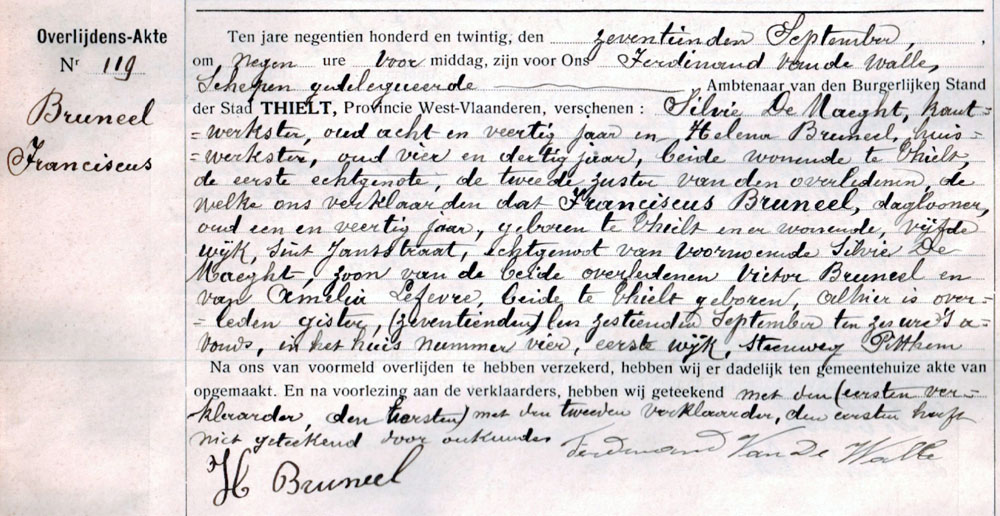 Overlijdens-Akte
Nr 119
Bruneel
Franciscus
Ten jare negentien honderd en twintig, den zeventienden September,
om negen ure voor middag, zijn voor Ons Ferdinand Van de Walle,
Schepen gedelegueerde Ambtenaar van den Burgerlijken Stand
der Stad THIELT, Provincie West-Vlaanderen, verschenen : Silvie De Maeght, kant-
-werkster, oud acht en veertig jaar en Helena Bruneel, huis-
-werkster, oud vier en dertig jaar, beide wonende te Thielt,
de eerste echtgenote, de tweede zuster van den overledenen, de
welke ons verklaarden dat Franciscus Bruneel, daglooner,
oud een en veertig jaar, geboren te Thielt en er wonende, vijfde
wijk, Sint Jansstraat, echtgenoot van voornoemde Silvie De
Maeght, zoon van de beide overledenen Victor Bruneel en
van Amelia Lefevre, beide te Thielt geboren, alhier is over-
-leden gister, (zeventienden) den zestienden September ten zes ure 's a-
vonds, in het huis nummer vier, eerste wijk, Steenweg Pitthem
Na ons van voormeld overlijden te hebben verzekerd, hebben wij er dadelijk ten gemeentehuize akte van
opgemaakt. En na voorlezing aan de verklaarders, hebben wij geteekend met den (eersten ver-
klaarder, den eersten) met den tweeden verklaarder, den eersten heeft
niet geteekend door onkunde
Ferdinand Van De Walle
H Bruneel